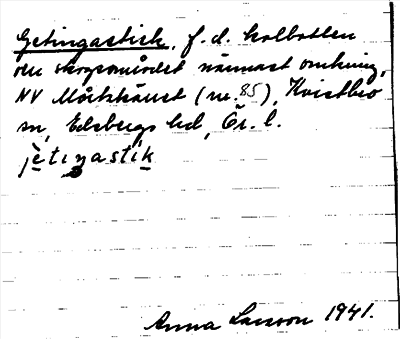 Getingastick, f.d. kolbotten
o. skogsområdet närmast omkring,
NV Mörkhäust (nr. 85), Kvistbro
sn, Edsbergs hd, Ör. l.
jetiŋastik
Anna Larsson 1941.